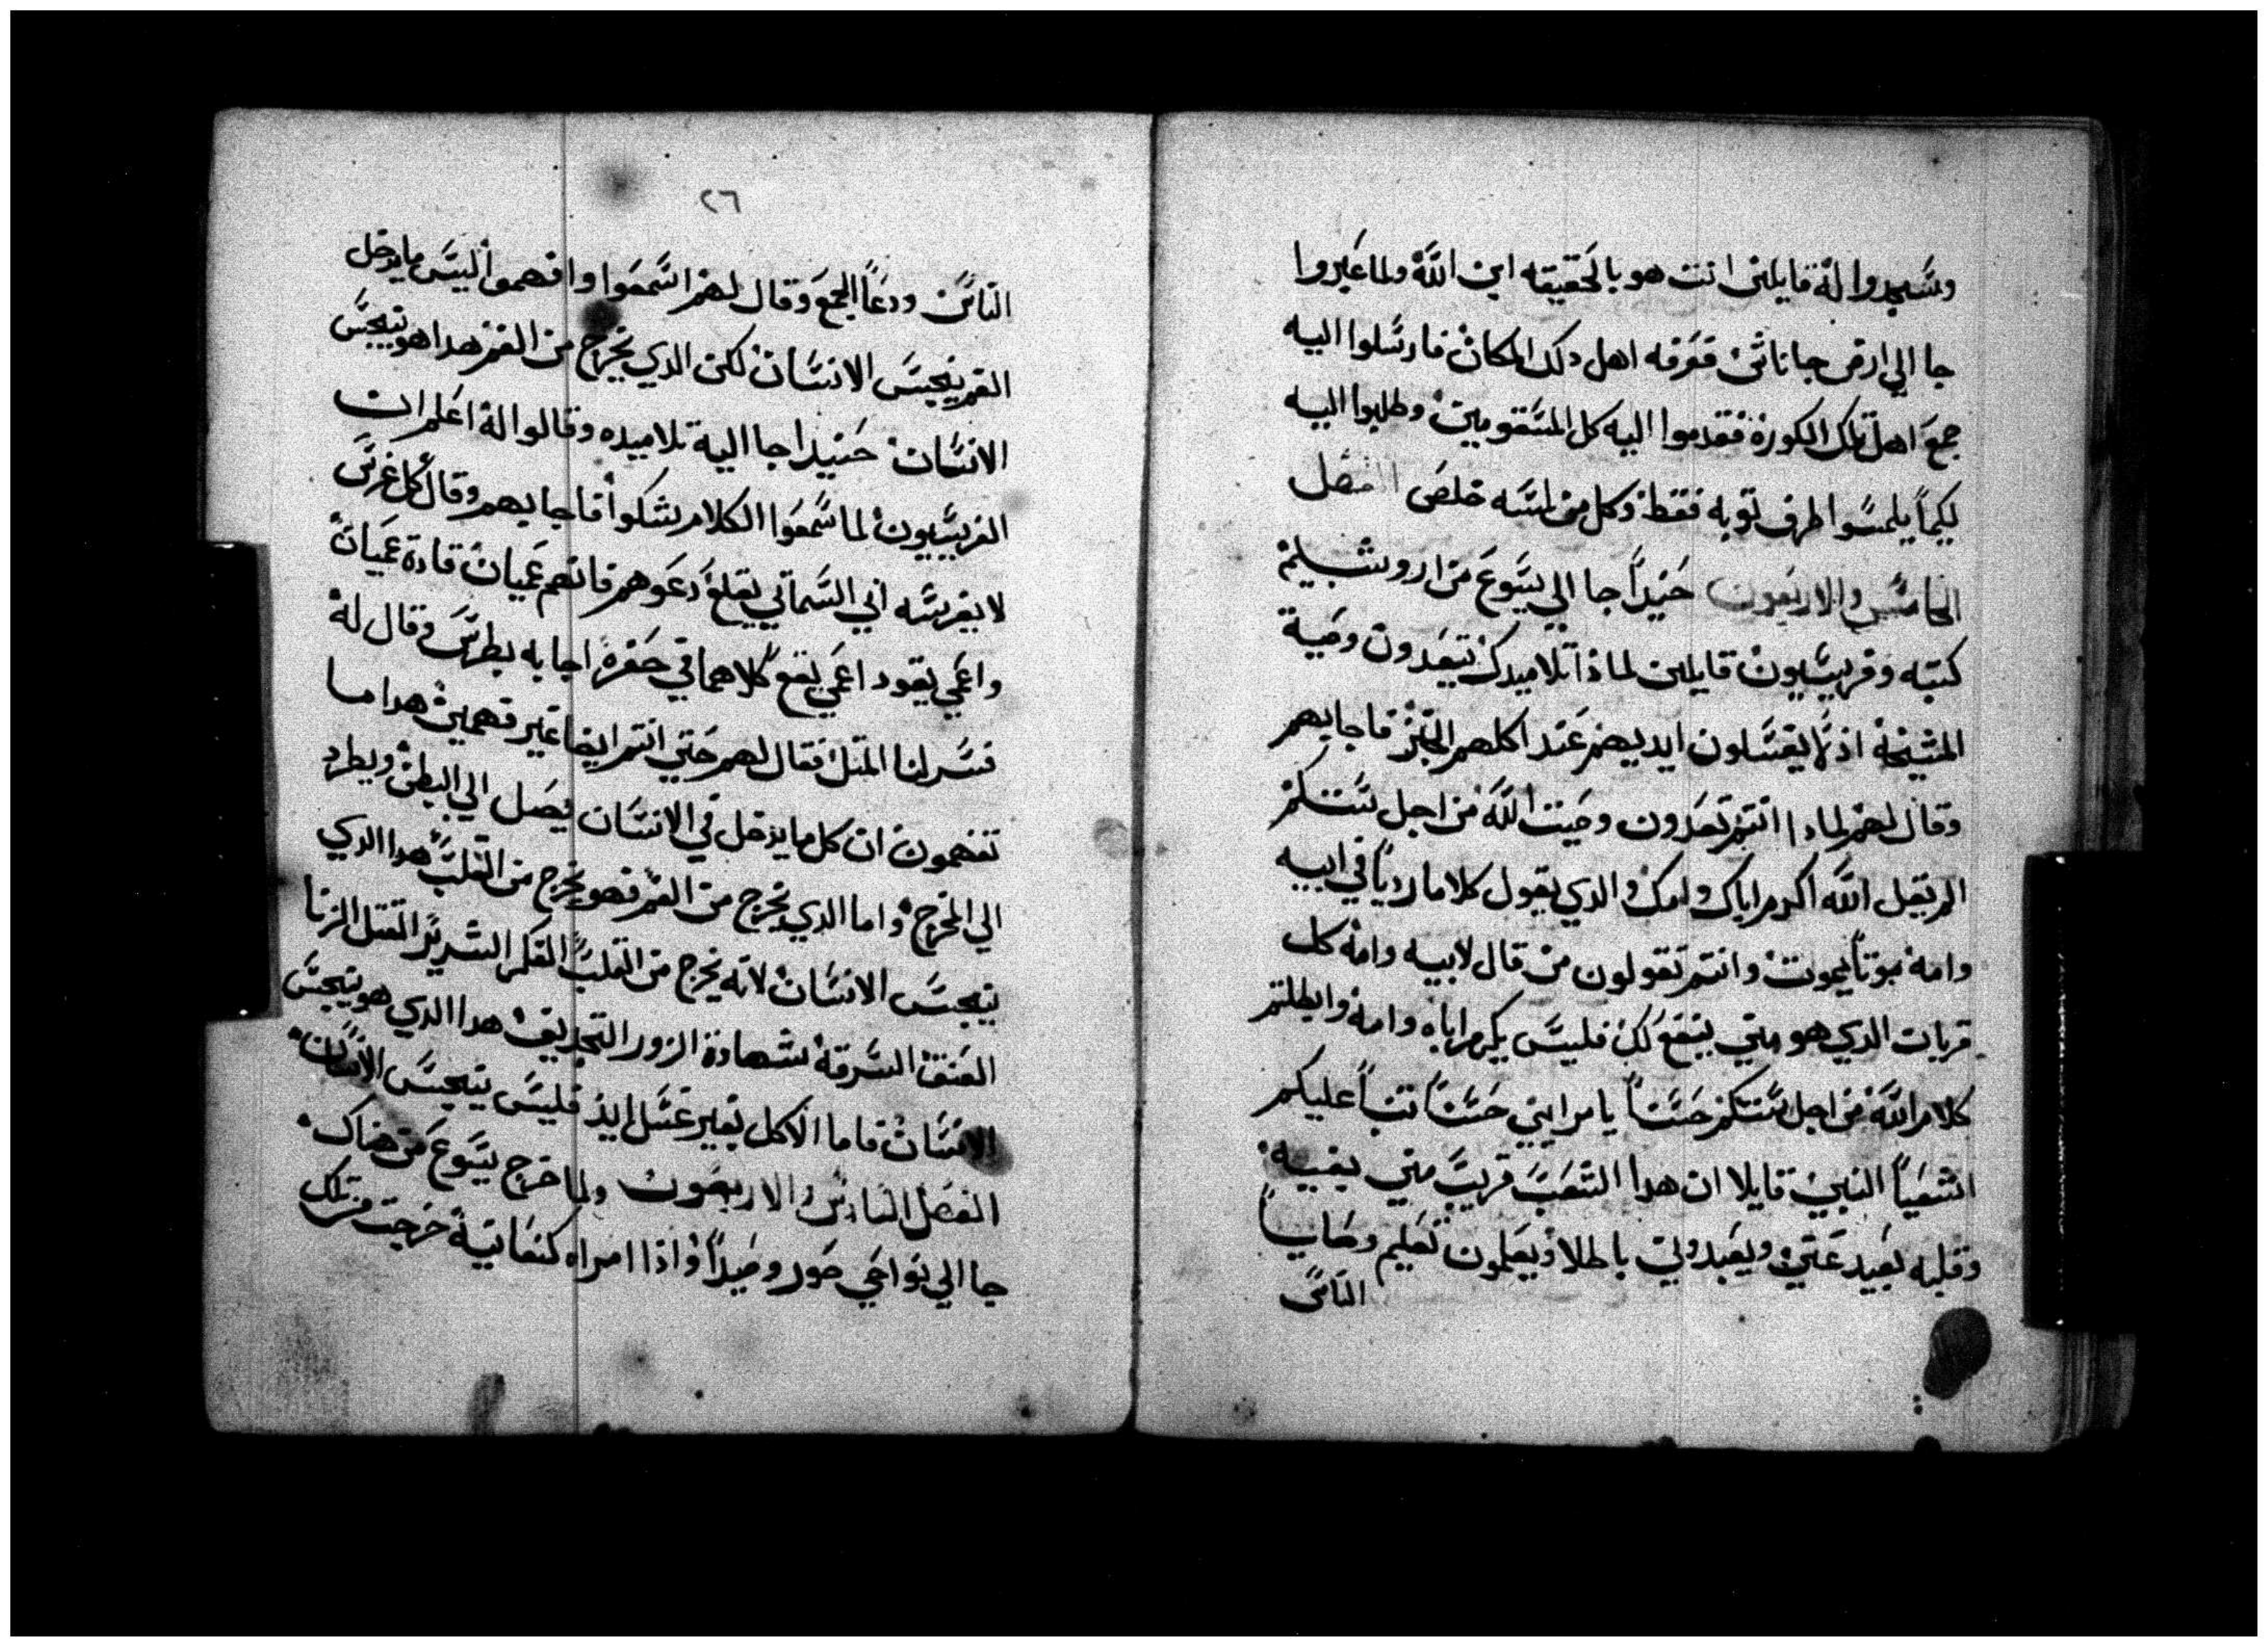 وسجدوا له قايلين انت هو بالحقيقه ابن الله ولما عبروا
جا الي ارض جاناشر فعرفه اهل دلك المكان فارسلوا اليه
جمع اهل تلك الكورة فقدموا اليه كل المسقومين وطلبوا اليه
ليكما يلمسوا طرف توبه فقط وكل من لمسه خلص الفصل
الخامس والاربعون حنيدا جا الي يسوع من اروشليم
كتبه وفريسيون قايلين لماذا تلاميدك يتعدون وصية
المشيخة اذ لا يغسلون ايديهم عند اكلهم الخبز فاجابهم
وقال لهم لمادا انتم تعدون وصيت الله من اجل سنتكم
الم يقل الله اكرم اباك وامك والدي يقول كلاما رديا في ابيه
وامه موتا يموت وانتم تقولون من قال لابيه وامه كل
قربان الدي هو مني ينفع لك فليس يكرم اباه وامه وابطلتم
كلام الله من اجل سنتكم حسنا يا مرايين حسنا تنبا عليكم
اشعيا النبي قايلا ان هدا الشعب قريب مني بفيه
وقلبه بعيد عني ويعبدوني باطلا ويعلمون تعليم وصايا
الناس
٢٦
الناس ودعا الجمع وقال لهم اسمعوا وافهموا اليس ما يدخل
الفم ينجس الانسان لكن الدي يخرج من الفم هدا هو ينجس
الانسان حنيدا جا اليه تلاميده وقالوا له اعلم ان
الفريسيون لما سمعوا الكلام شكوا فاجابهم وقال كل غرس
لا يغرسه ابي السمائي يقلع دعوهم فانهم عميان قادة عميان
واعمي يقود اعمي يقع كلاهما في حفرة اجابه بطرس وقال له
فسر لنا المثل فقال لهم حتي انتم ايضا غير فهمين هدا ما
تفهمون ان كل ما يدخل في الانسان يصل الي البطن ويطرد
الي المخرج واما الدي يخرج من الفم فهو يخرج من القلب هدا الدي
ينجس الانسان لانه يخرج من القلب الفكر الشرير القتل الزنا
العنق السرقة شهادة الزور التجديف هدا الدي هو ينجس
الانسان فاما الاكل بغير غسل ايد فليس ينجس الانسان
الفصل السادس والاربعون ولما خرج يسوع من هناك
جا الي نواحي صور وصيدا واذا امراه كنعانية خرجت من تلك